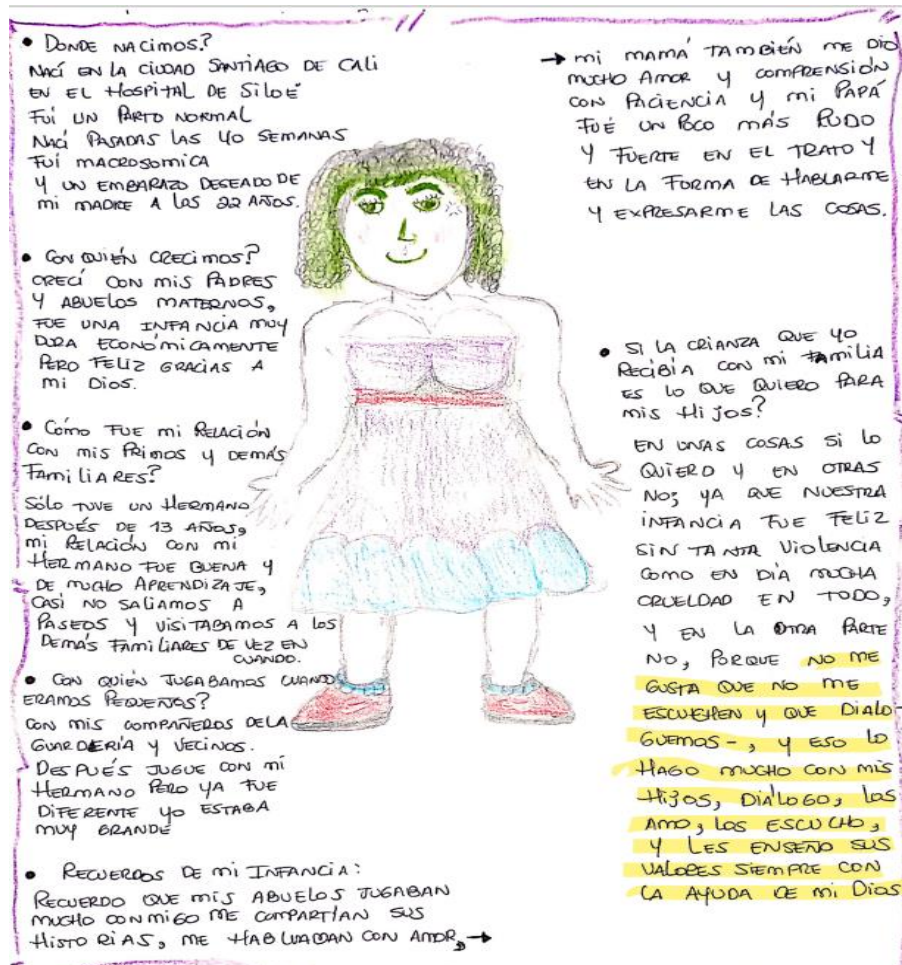 • DONDE NACIMOS?
NACÍ EN LA CIUDAD SANTIAGO DE CALI
EN EL HOSPITAL DE SILOÉ
FUÍ UN PARTO NORMAL
NACÍ PASADAS LAS 40 SEMANAS
FUÍ MACROSOMICA
Y UN EMBARAZO DESEADO DE
MI MADRE A LOS 22 AÑOS.
• CON QUIÉN CRECIMOS?
CRECÍ CON MIS PADRES
Y ABUELOS MATERNOS,
FUE UNA INFANCIA MUY
DURA ECONÓMICAMENTE
PERO FELIZ GRACIAS A
MI DIOS.
• CÓMO FUE MI RELACIÓN
CON MIS PRIMOS Y DEMÁS
FAMILIARES?
SÓLO TUVE UN HERMANO
DESPUÉS DE 13 AÑOS,
MI RELACIÓN CON MI
HERMANO FUE BUENA Y
DE MUCHO APRENDIZAJE,
CASI NO SALIAMOS A
PASEOS Y VISITABAMOS A LOS
DEMÁS FAMILIARES DE VEZ EN
CUANDO.
• CON QUIÉN JUGABAMOS CUANDO
ERAMOS PEQUEÑOS?
CON MIS COMPAÑEROS DE LA
GUARDERÍA Y VECINOS.
DESPUÉS JUGUE CON MI
HERMANO PERO YA FUE
DIFERENTE YO ESTABA
MUY GRANDE
• RECUERDOS DE MI INFANCIA:
RECUERDO QUE MIS ABUELOS JUGABAN
MUCHO CONMIGO ME COMPARTÍAN SUS
HISTORIAS, ME HABLABAN CON AMOR, →
→ MI MAMÁ TAMBIÉN ME DIO
MUCHO AMOR Y COMPRENSIÓN
CON PACIENCIA Y MI PAPÁ
FUÉ UN POCO MÁS RUDO
Y FUERTE EN EL TRATO Y
EN LA FORMA DE HABLARME
Y EXPRESARME LAS COSAS.
• SI LA CRIANZA QUE YO
RECIBÍA CON MI FAMILIA
ES LO QUE QUIERO PARA
MIS HIJOS?
EN UNAS COSAS SI LO
QUIERO Y EN OTRAS
NO; YA QUE NUESTRA
INFANCIA FUE FELIZ
SIN TANTA VIOLENCIA
COMO EN DÍA MUCHA
CRUELDAD EN TODO,
Y EN LA OTRA PARTE
NO, PORQUE NO ME
GUSTA QUE NO ME
ESCUCHEN Y QUE DIALO-
GUEMOS-, Y ESO LO
HAGO MUCHO CON MIS
HIJOS, DIÁLOGO, LOS
AMO, LOS ESCUCHO,
Y LES ENSEÑO SUS
VALORES SIEMPRE CON
LA AYUDA DE MI DIOS